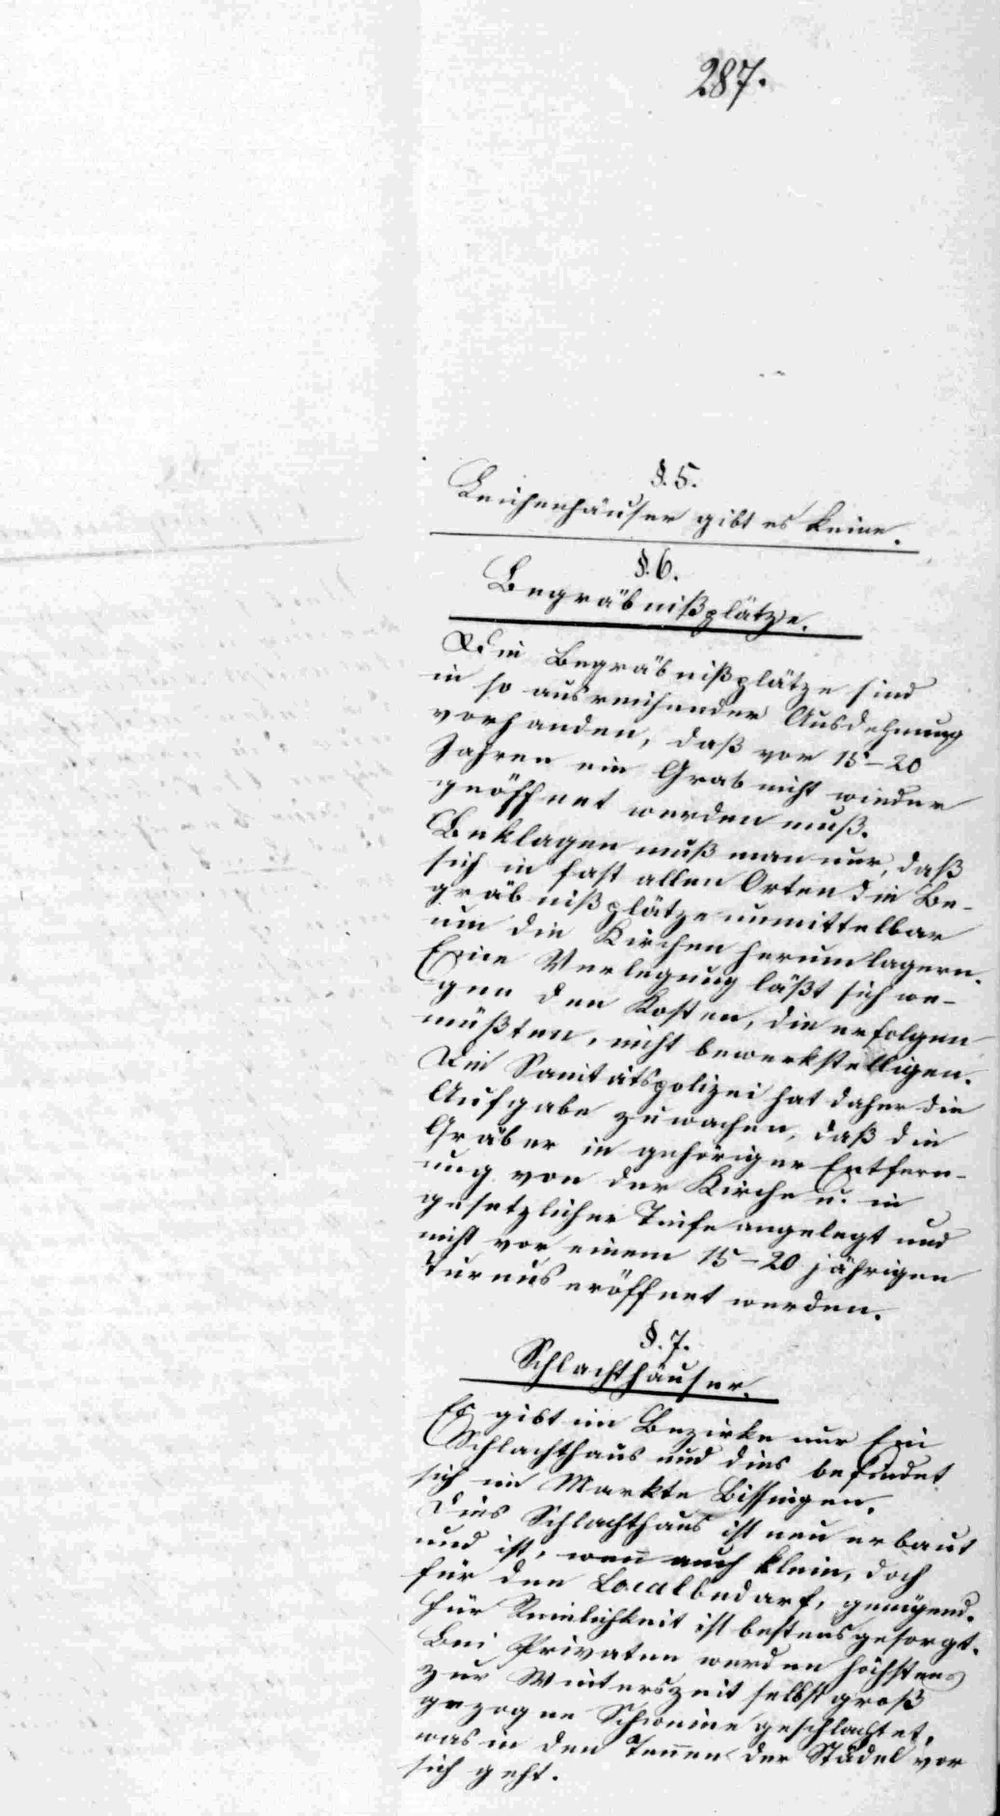 287.
§. 5.
Leichenhäuser gibt es keine.
§. 6.
Begräbnißplätze.
Die Begräbnißplätze sind
in so ausreichender Ausdehnung
vorhanden, daß vor 15-20
Jahren ein Grab nicht wieder
geöffnet werden muß.
Beklagen muß man nur, daß
sich in fast allen Orten die Be-
gräbnißplätze unmittelbar
um die Kirchen herumlagern.
Eine Verlegung läßt sich we-
gen den Kosten, die erfolgen
müßten, nicht bewerkstelligen.
Die Sanitätspolizei hat daher die
Aufgabe zu wachen, daß die
Gräber in gehöriger Entfern-
ung von der Kirche u. in
gesetzlicher Tiefe angelegt und
nicht vor einem 15-20 jährigen
Turnus eröffnet werden.
§. 7.
Schlachthäuser.
Es gibt im Bezirke nur Ein
Schlachthaus und dies befindet
sich im Markte Bissingen.
Dies Schlachthaus ist neu erbaut
und ist, wen̄ auch klein, doch
für den Localbedarf, genügend.
Für Reinlichkeit ist bestens gesorgt.
Bei Privaten werden höchstens
zur Winterszeit selbst groß
gezogne Schweine geschlachtet,
was in den Ten̄en der Städel vor
sich geht.